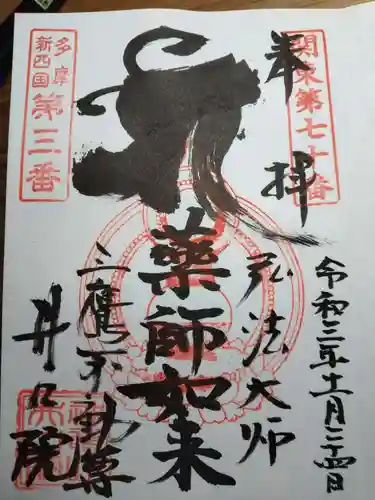 奉拝
関東第七十番
令和三年十一月二十四日
弘法大师
薬師如来
三鷹不動尊
井口院
多摩
新四国
第三番